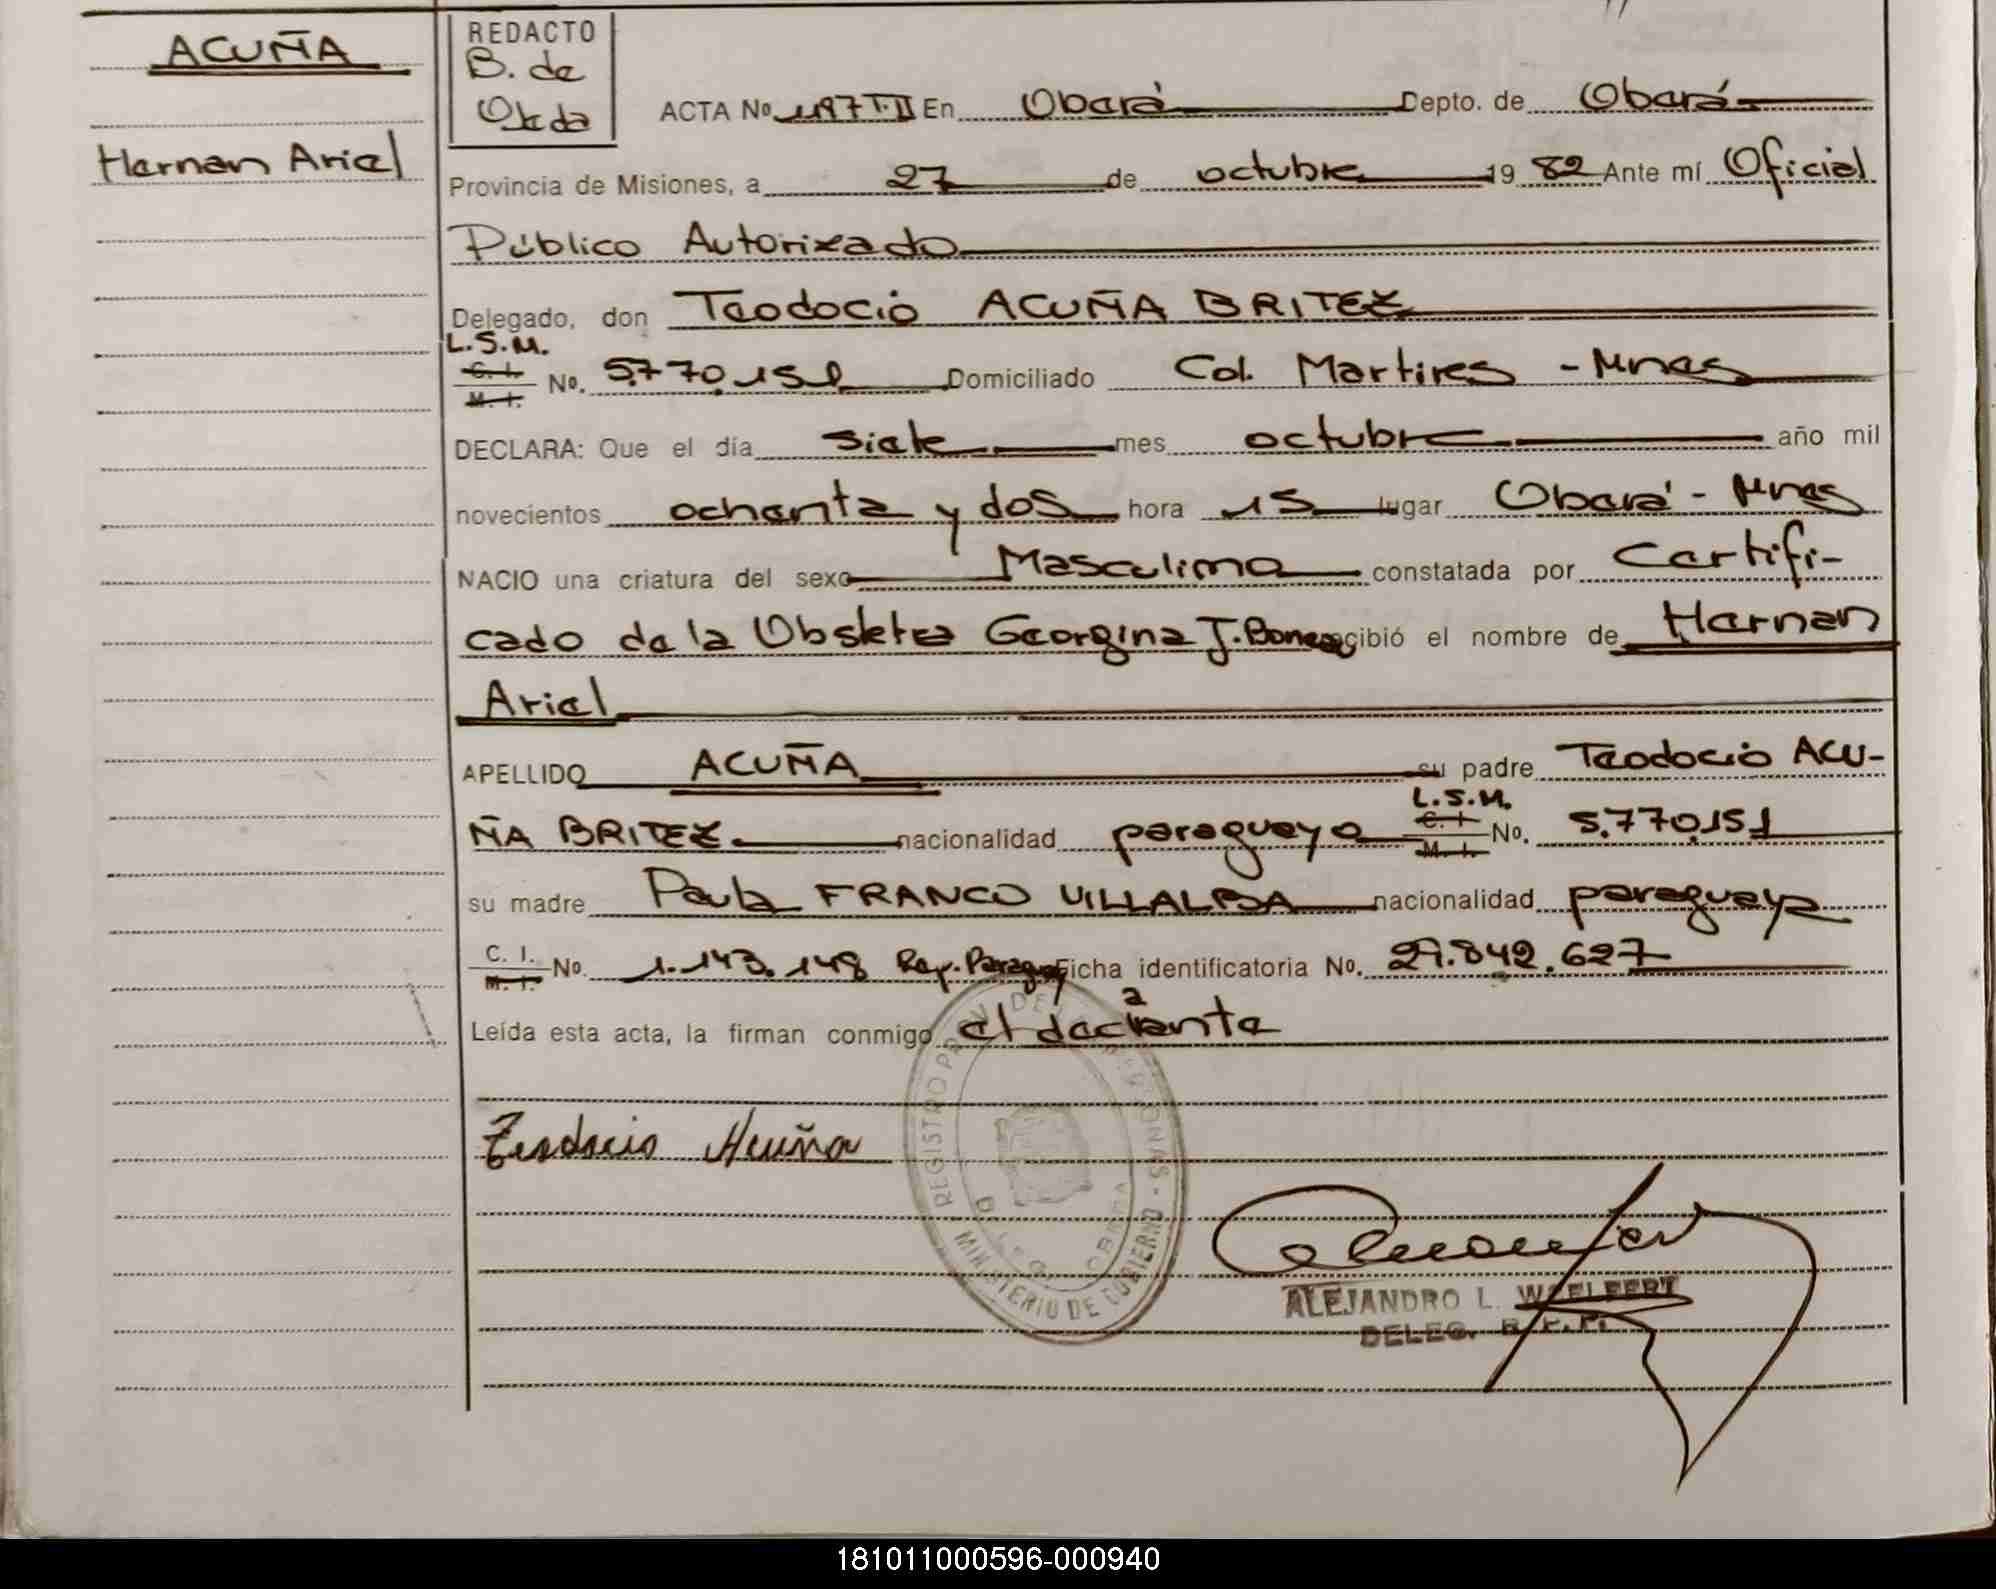 ACUÑA
Hernan Ariel
REDACTO
B. de
Ojeda
ACTA No 1197 T. II En Oberá Depto. de Oberá
Provincia de Misiones, a 27 de octubre 19 82 Ante mí Oficial
Público Autorizado
Delegado, don Teodocio ACUÑA BRITEZ
L.S.M.
C. I.
M. I. No. 5.770.151 Domiciliado Col. Martires - Mnes
DECLARA: Que el día siete mes octubre año mil
novecientos ochenta y dos hora 15 lugar Oberá - Mnes
NACIO una criatura del sexo Masculino constatada por Certifi-
cado de la Obstetra Georgina J. recibió el nombre de Hernan
Ariel
APELLIDO ACUÑA su padre Teodocio ACU-
ÑA BRITEZ nacionalidad paraguayo L.S.M. C. I. M. I. No. 5.770.151
su madre Paula FRANCO VILLALBA nacionalidad paraguaya
C. I.
M. I. No. 1.143.148 Rep. Paraguay Ficha identificatoria No. 29.842.627
Leída esta acta, la firman conmigo el declarante
Teodocio Acuña
REGISTRO PROV. DE LAS PERSONAS - MINISTERIO DE GOBIERNO
OBERA
ALEJANDRO L. WOELFERT
DELEG. R. P. P.
181011000596-000940